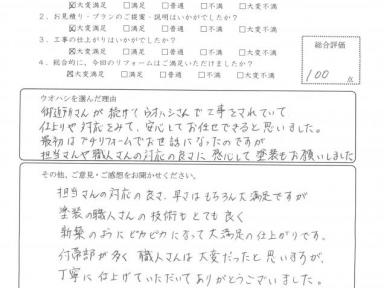 ☒大変満足 □満足 □普通 □不満 □大変不満
2．お見積り・プランのご提案・説明はいかがでしたか？
☒大変満足 □満足 □普通 □不満 □大変不満
3．工事の仕上がりはいかがでしたか？
☒大変満足 □満足 □普通 □不満 □大変不満
4．総合的に、今回のリフォームはご満足いただけましたか？
☒大変満足 □満足 □普通 □不満 □大変不満
総合評価
100 点
ウオハシを選んだ理由
御近所さんが続けてウオハシさんで工事をされていて
仕上りや対応をみて、安心してお任せできると思いました。
最初はプチリフォームでお世話になったのですが
担当さんや職人さんの対応の良さに感心して塗装もお願いしました
その他、ご意見・ご感想をお聞かせください。
担当さんの対応の良さ、早さはもちろん大満足ですが
塗装の職人さんの技術もとても良く
新築のようにピカピカになって大満足の仕上がりです。
付帯部が多く 職人さんは大変だったと思いますが、
丁寧に仕上げていただいてありがとうございました。